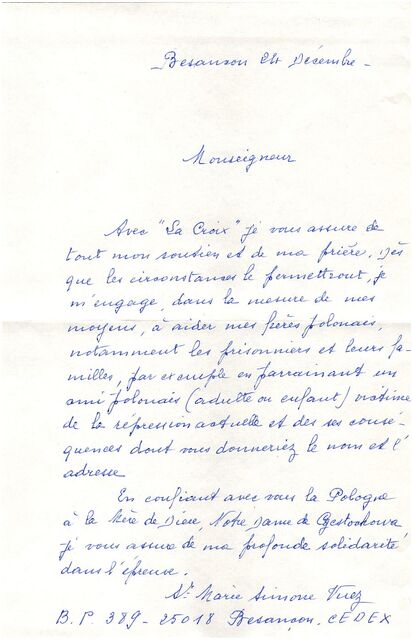 - Besançon 24 Décembre -
Monseigneur
Avec "La Croix" je vous assure de
tout mon soutien et de ma prière. Dès
que les circonstances le permettront, je
m'engage, dans la mesure de mes
moyens, à aider mes frères polonais,
notamment les prisonniers et leurs fa-
milles, par exemple en parrainant un
ami polonais (adulte ou enfant) victime
de la répression actuelle et des ses consé-
quences dont vous donneriez le nom et l'
adresse
En confiant avec vous la Pologne
à la Mère de Dieu, Notre Dame de Czestochowa
je vous assure de ma profonde solidarité
dans l'épreuve.
Sr Marie Simone
B.P. 389 - 25018 Besançon, CEDEX